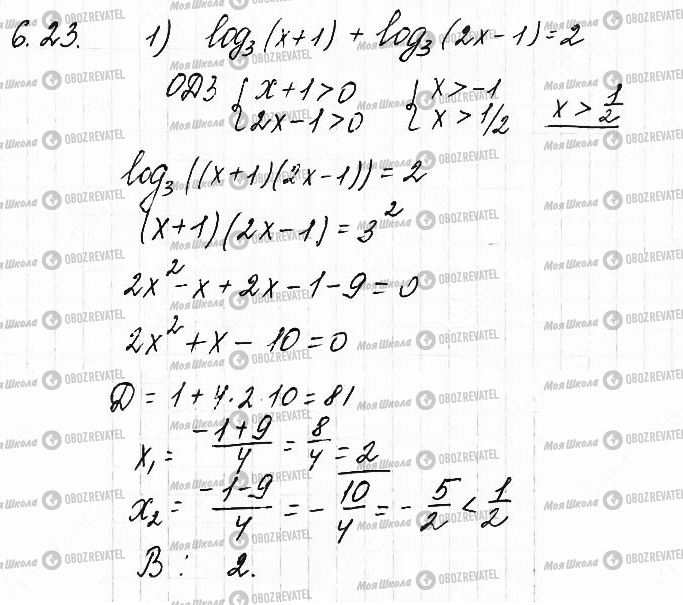 6.23. 1) log₃(x+1) + log₃(2x-1) = 2
ОДЗ { x+1>0 { x>-1
{ 2x-1>0 { x>1/2 x > 1/2
log₃((x+1)(2x-1)) = 2
(x+1)(2x-1) = 3²
2x² - x + 2x - 1 - 9 = 0
2x² + x - 10 = 0
D = 1 + 4·2·10 = 81
x₁ = (-1+9)/4 = 8/4 = 2
x₂ = (-1-9)/4 = -10/4 = -5/2 < 1/2
В: 2.
Моя Школа OBOZREVATEL